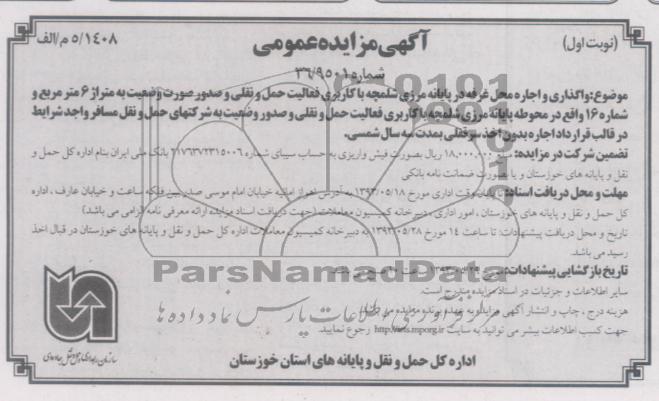 (نوبت اول)
آگهی مزایده عمومی
۵/۱۴۰۸ م/الف
شماره ۳۶/۹۵۰۱
موضوع: واگذاری و اجاره محل غرفه در پایانه مرزی شلمچه با کاربری فعالیت حمل و نقلی و صدور صورت وضعیت به متراژ ۶ متر مربع و
شماره ۱۶ واقع در محوطه پایانه مرزی شلمچه با کاربری فعالیت حمل و نقلی و صدور وضعیت به شرکتهای حمل و نقل مسافر واجد شرایط
در قالب قرارداد اجاره بدون اخذ سرقفلی بمدت سه سال شمسی.
تضمین شرکت در مزایده: ۱۸,۰۰۰,۰۰۰ ریال بصورت فیش واریزی به حساب سیبای شماره ۲۱۷۶۳۷۲۳۱۵۰۰۶ بانک ملی ایران بنام اداره کل حمل و
نقل و پایانه های خوزستان و یا بصورت ضمانت نامه بانکی
مهلت و محل دریافت اسناد: تا پایان وقت اداری مورخ ۱۳۹۳/۰۵/۱۸ به آدرس اهواز امانیه خیابان امام موسی صدر بین فلکه ساعت و خیابان عارف، اداره
کل حمل و نقل و پایانه های خوزستان، امور اداری، دبیرخانه کمیسیون معاملات (جهت دریافت اسناد مزایده ارائه معرفی نامه الزامی می باشد)
تاریخ و محل دریافت پیشنهادات: تا ساعت ۱۴ مورخ ۱۳۹۳/۰۵/۲۸ به دبیرخانه کمیسیون معاملات اداره کل حمل و نقل و پایانه های خوزستان در قبال اخذ
رسید می باشد.
تاریخ بازگشایی پیشنهادات:
سایر اطلاعات و جزئیات در اسناد مزایده مندرج است.
هزینه درج، چاپ و انتشار آگهی مزایده به عهده برنده مزایده می باشد.
جهت کسب اطلاعات بیشتر می توانید به سایت http://iets.mporg.ir رجوع نمایید.
اداره کل حمل و نقل و پایانه های استان خوزستان
سازمان راهداری و حمل و نقل جاده ای
ParsNamadData
فن آوری اطلاعات پارس نماد داده ها